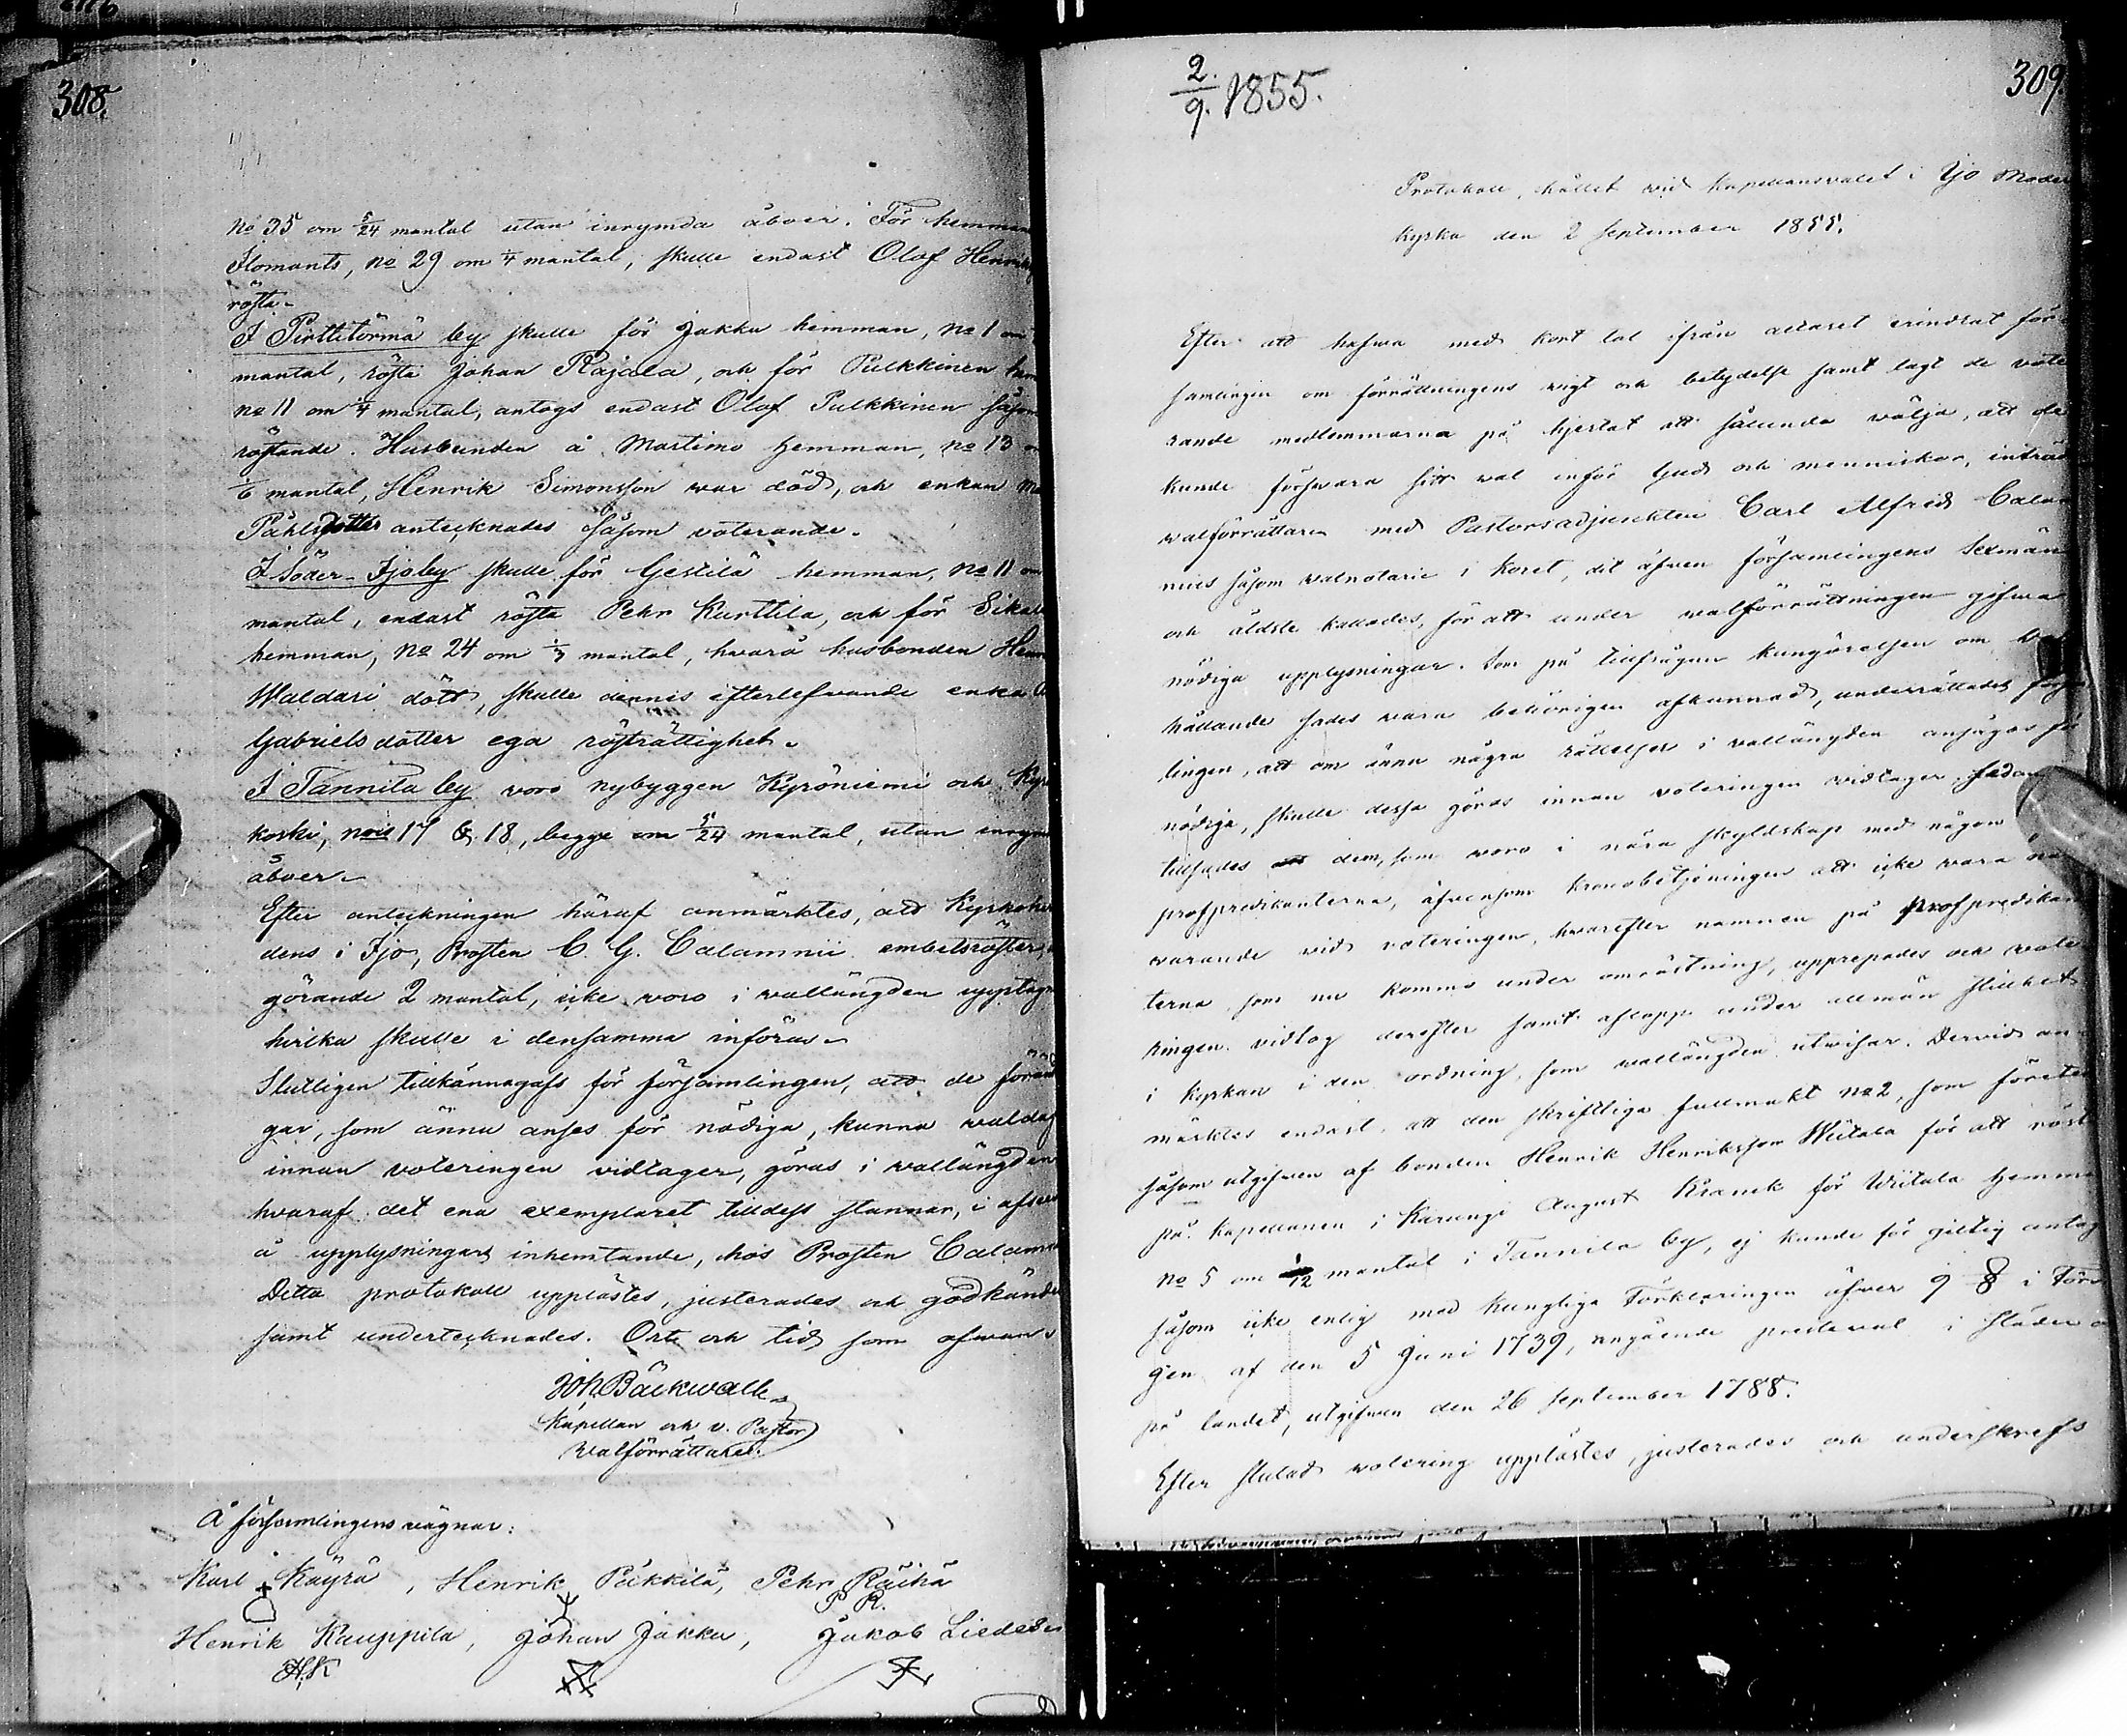 308.
No 35 om 5/24 mantal utan inrymda åboer. För hemman
Ilomants, No 29 om 1/4 mantal, skulle endast Olof Henrik
rösta.
I Pirttitörmä by skulle för Jakku hemman, No 1 om
mantal, rösta Johan Rajala, och för Pulkkinen hem
No 11 om 1/4 mantal, antogs endast Olof Pulkkinen såsom
röstande. Husbonden å Martimo hemman, No 13
1/6 mantal, Henrik Simonsson war död, och enkan
Påhlsdotter antecknades såsom voterande.
I Söder-Ijo by skulle för Gestilä hemman, No 11 om
mantal, endast rösta Pehr Kurttila, och för
hemman, No 24 om mantal, hvarå husbonden
Waldari dött, skulle dennes efterlefvande enka
Gabrielsdotter ega rösträttighet.
I Tannila by voro nybyggen Kyröniemi och
koski, Nris 17 & 18, begge om 5/24 mantal, utan
åboer.
Efter anteckningen häraf anmärktes, att Kyrkoher
dens i Ijo, Prosten C. G. Calamnii embetsröster,
görande 2 mantal, icke voro i wallängden upptagne
hvilka skulle i densamma införas.
Slutligen tillkännagafs för församlingen, att de föränd
gar, som ännu anses för nödiga, kunna valdag
innan voteringen vidtager, göras i wallängden
hvaraf det ena exemplaret tilldess stannar, i afse
å upplysningars inhemtande, hos Prosten Calam
Detta protokoll upplästes, justerades och godkänd
samt undertecknades. Ort och tid som ofvan.
Joh. Bäckwall
Kapellan och v. Pastor
Walförrättare.
Å församlingens vägnar:
Karl Käyrä, Henrik Pukkilä, Pehr Räihä
P R.
Henrik Kauppila, Johan Jakku, Jakob
H. K
2/9. 1855.
309.
Protokoll, hållet vid Kapellansvalet i Ijo Moder
Kyrka den 2 September 1855.
Efter att hafwa med kort tal ifrån altaret erindrat för-
samlingen om förrättningens vigt och betydelse samt lagt de vote
rande medlemmarna på hjertat att sålunda välja, att de
kunde försvara sitt val inför Gud och menniskor, inträd
walförrättaren med Pastorsadjunkten Carl Alfred Calam
nius såsom valnotarie i koret, dit äfven församlingens Sexmän
och äldste kallades, för att under walförrättningen gifva
nödiga upplysningar. Som på tillfrågan kungörelsen om
hållande sades vara behörigen afkunnad, underrättades
lingen, att om ännu några rättelser i vallängden ansågos
nödiga, skulle dessa göras innan voteringen vidtager.
tillsades dem, som voro i nära skyldskap med någon
profpredikanterna, äfvensom kronobetjeningen att icke vara när
varande vid voteringen, hvarefter namnen på profpredikan
terna som nu komme under omröstning, upprepades och vote
ringen vidtog derefter samt aflopp under allmän stillhet
i Kyrkan i den ordning, som vallängden utvisar. Dervid an-
märktes endast, att den skriftliga fullmakt No 2, som företed
såsom utgifven af bonden Henrik Henriksson Wiitala för att rösta
på Kapellanen i Karungi August Kranck för Wiitala hemman
No 5 om 1/12 mantal i Tannila by, ej kunde för giltig antag
såsom icke enlig med Kungliga Förklaringen öfver § 8 i För
gen af den 5 Juni 1739, angående prestaval i städer
på landet, utgifven den 26 September 1788.
Efter slutad votering upplästes, justerades och underskrefs